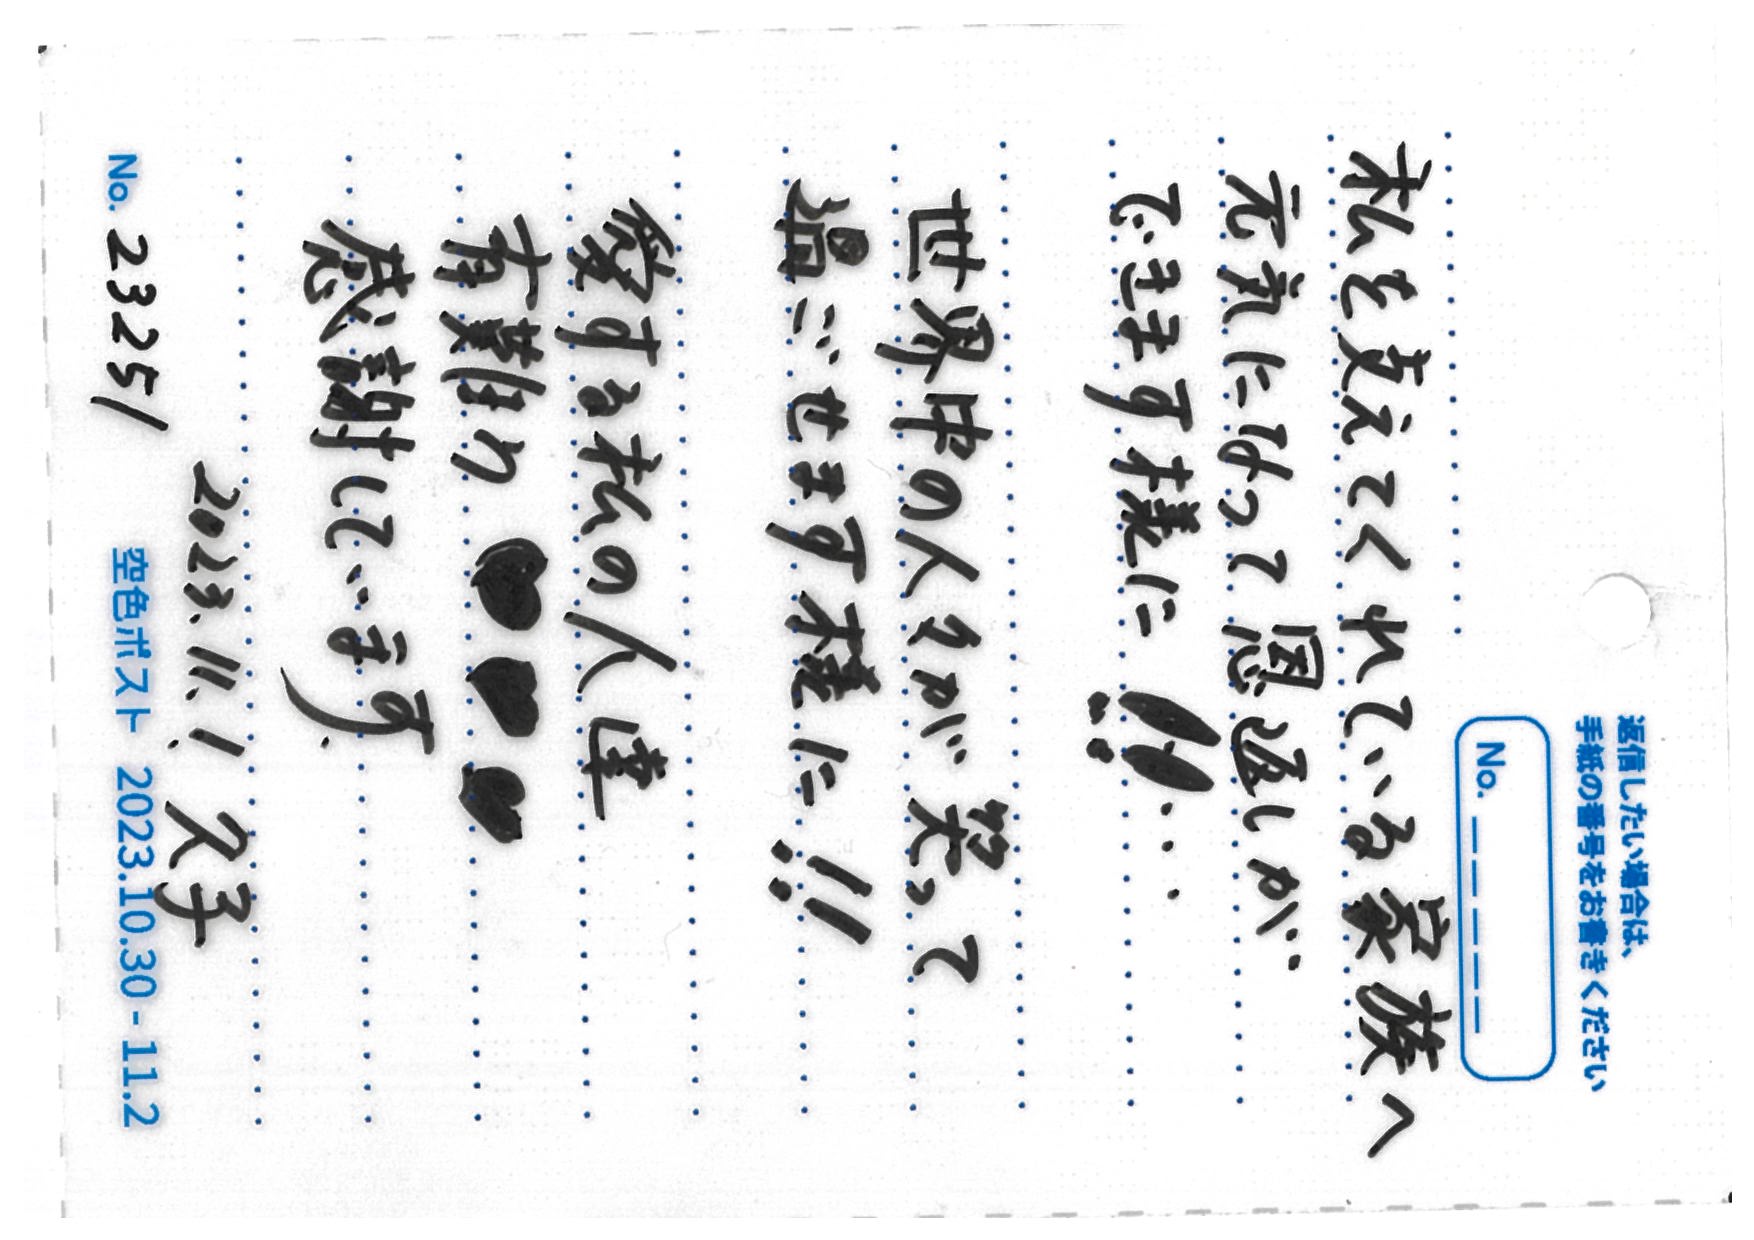 返信したい場合は、
手紙の番号をお書きください
No. _ _ _ _ _
私を支えてくれている家族へ
元気になって恩返しが
できます様に!!...
世界中の人々が笑って
過ごせます様に!!
愛する私の人達
有難う♥♥♥
感謝しています.
2023.11.1 久子
No. 23251
空色ポスト 2023.10.30 - 11.2